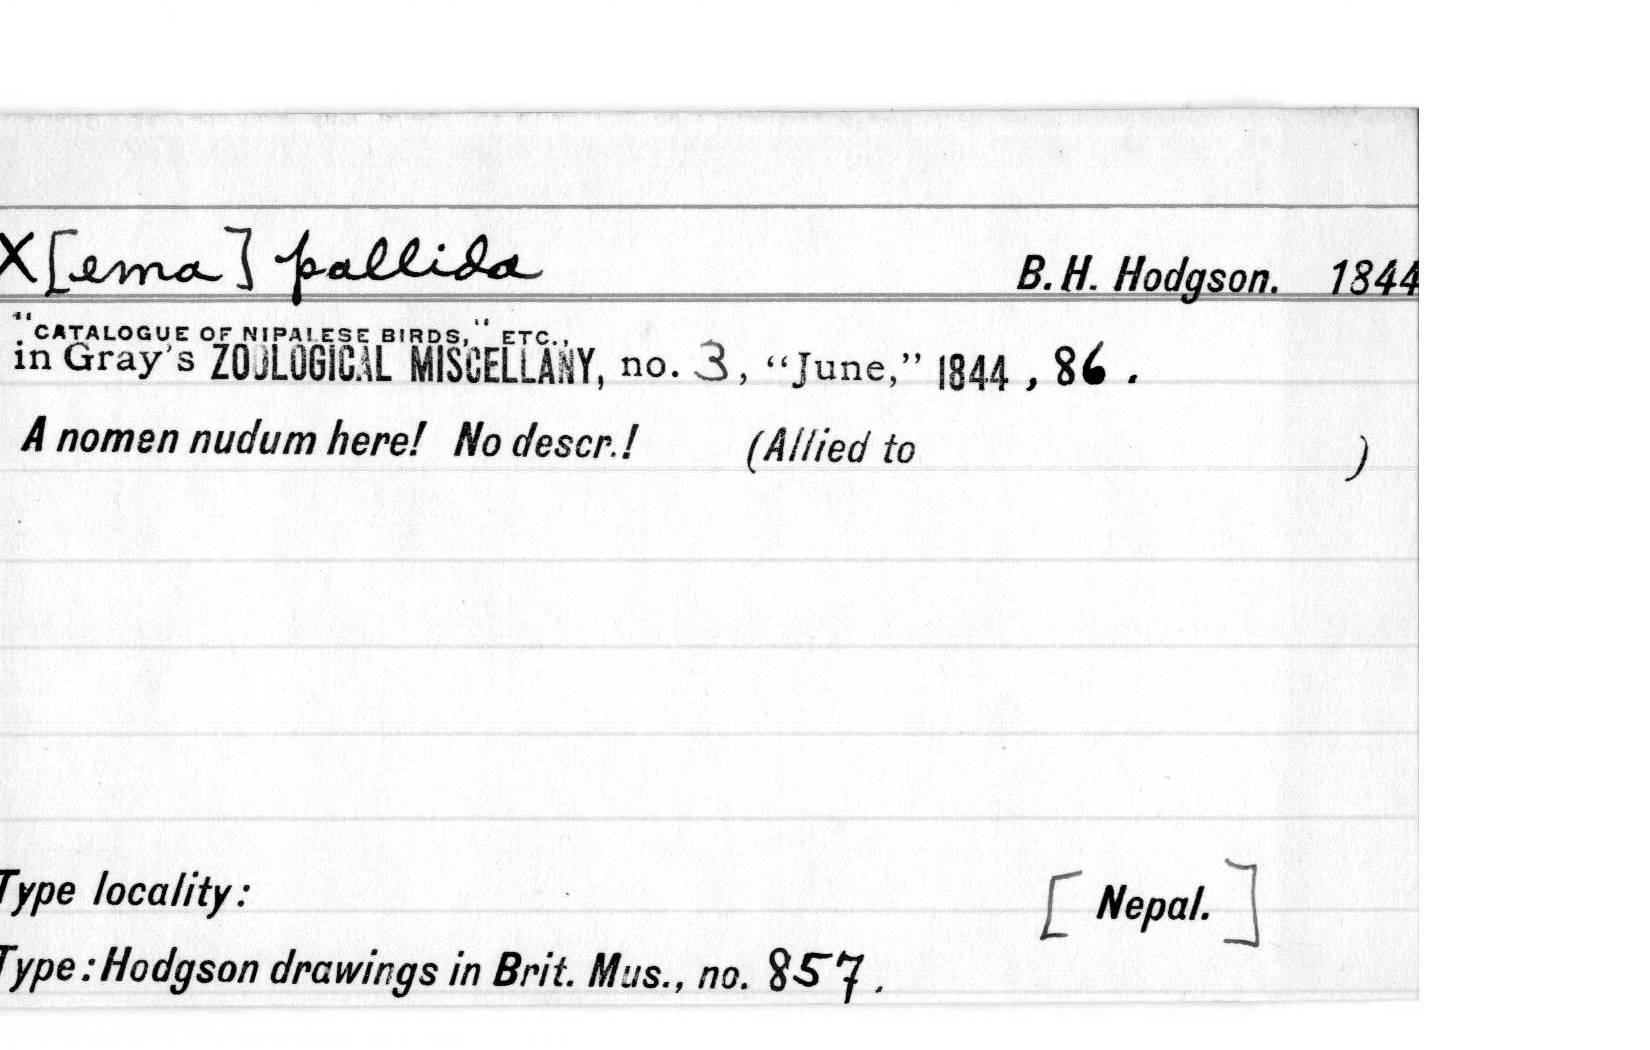 X[ema] pallida B. H. Hodgson. 1844
"CATALOGUE OF NIPALESE BIRDS," ETC.,
in Gray's ZOOLOGICAL MISCELLANY, no. 3, "June," 1844, 86.
A nomen nudum here! No descr.! (Allied to )
Type locality: [Nepal.]
Type: Hodgson drawings in Brit. Mus., no. 857.